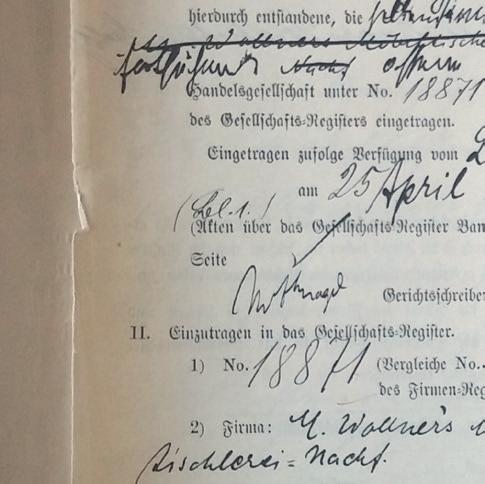 hierdurch entstandene, die
M. Wollners Möbeltischle
fortführende Nachf offene
Handelsgesellschaft unter No. 18871
des Gesellschafts-Registers eingetragen.
Eingetragen zufolge Verfügung vom 2
am 25 April
(Bel. 1.)
(Akten über das Gesellschafts-Register Ban
Seite
Gerichtsschreiber
II. Einzutragen in das Gesellschafts-Register.
1) No. 18871 (Vergleiche No.
des Firmen-Reg
2) Firma: M. Wollner's
tischlerei = Nachf.